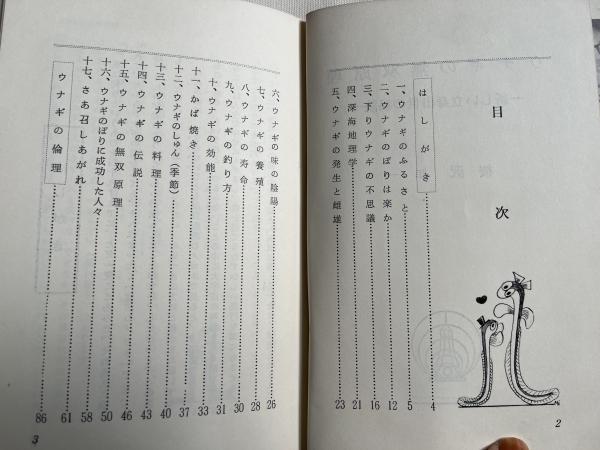 目次
はしがき 4
一、ウナギのふるさと 5
二、ウナギのぼりは楽か 12
三、下りウナギの不思議 16
四、深海地理学 21
五、ウナギの発生と雌雄 23
2
六、ウナギの味の陰陽 26
七、ウナギの養殖 28
八、ウナギの寿命 30
九、ウナギの釣り方 31
十、ウナギの効能 33
十一、かば焼き 37
十二、ウナギのしゅん(季節) 40
十三、ウナギの料理 43
十四、ウナギの伝説 46
十五、ウナギの無双原理 50
十六、ウナギのぼりに成功した人々 58
十七、さあ召しあがれ 61
ウナギの倫理 86
3